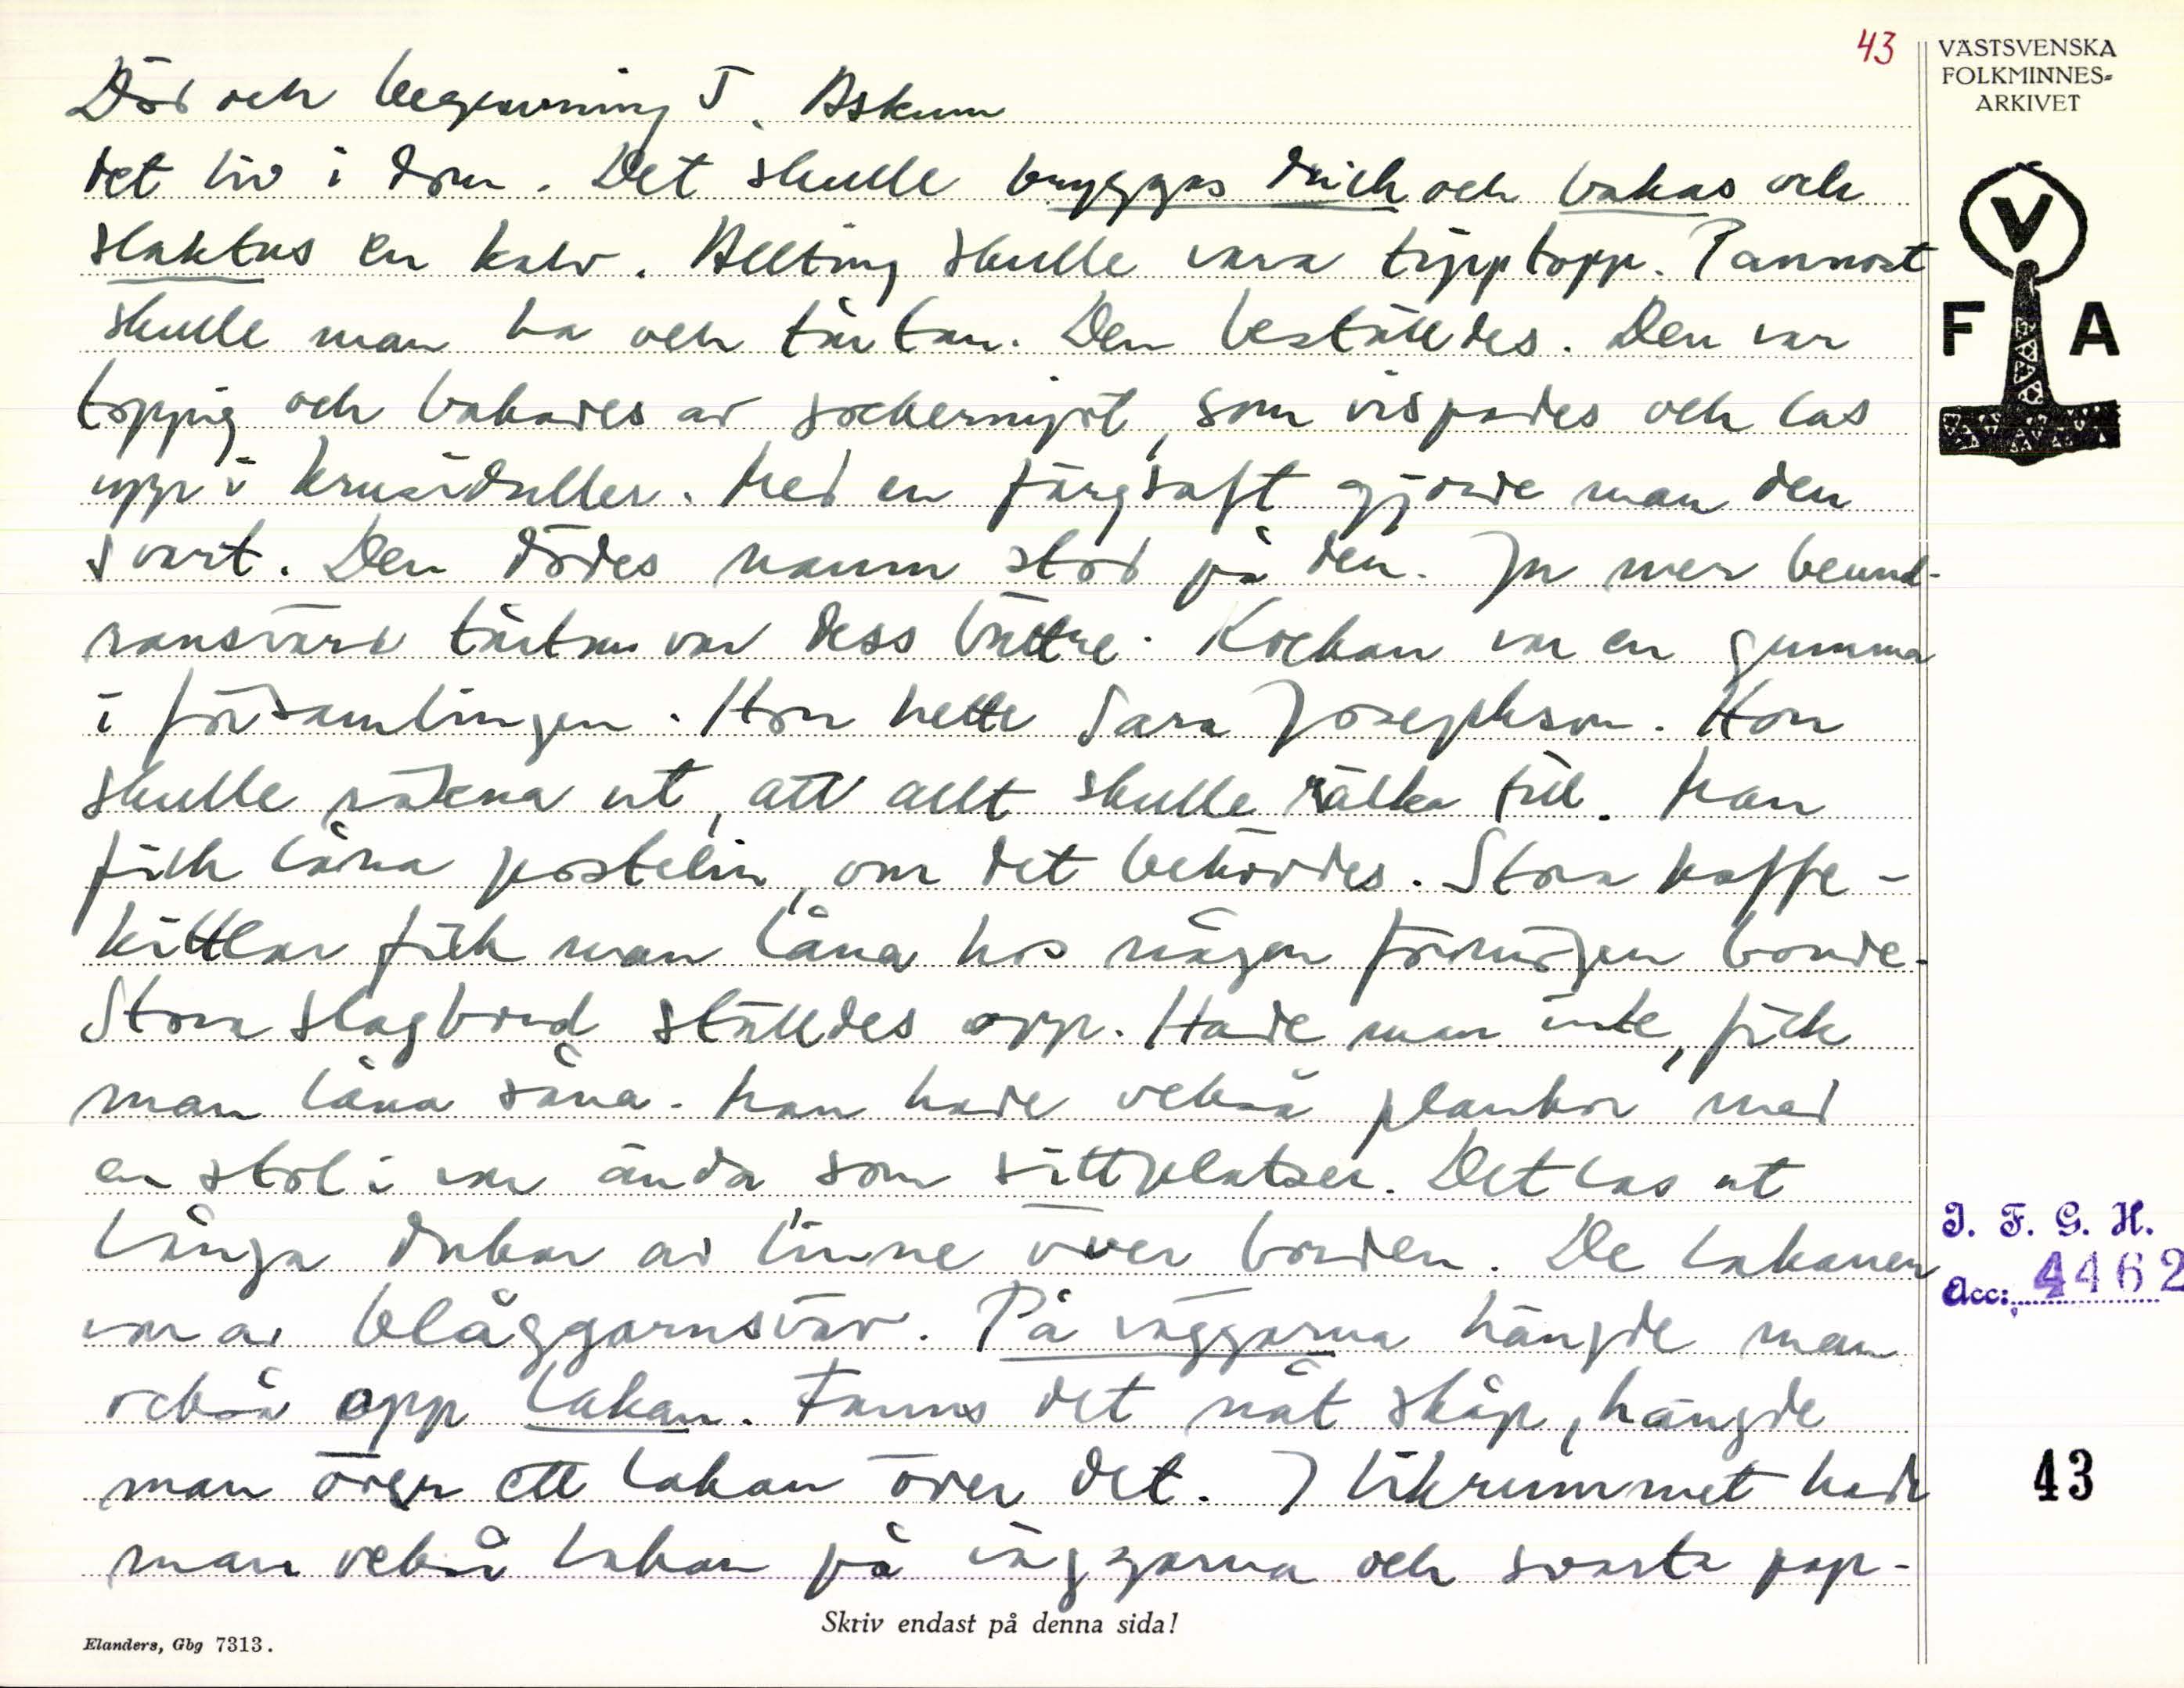 43
VÄSTSVENSKA
FOLKMINNES-
ARKIVET
Död och begravning J. Askum
det liv i dom. Det skulle bryggas drick och bakas och
slaktas en kalv. Allting skulle vara tipptopp. Pannost
skulle man ha och tårtan. Den beställdes. Den var
toppig och bakades av sockermjöl, som vispades och las
upp i krusiduller. Med en färgsaft gjorde man den
svart. Den dödes namn stod på den. Ju mer beund-
ransvärd tårtan var dess bättre. Kockan var en gumma
i församlingen. Hon hette Sara Josephson. Hon
skulle räkna ut, att allt skulle räka till. Man
fick låna postelin, om det behövdes. Stora kaffe-
kittlar fick man låna hos någon förmögen bonde.
Stora slagbord ställdes opp. Hade man inte, fick
man låna såna. Man hade också plankor med
en stol i var ända som sittplatser. Det las ut
långa dukar av linne över borden. De lakanen
var av blåggarnsväv. På väggarna hängde man
också opp lakan. Fanns det nåt skåp, hängde
man över ett lakan över det. I likrummet hade
man också lakan på väggarna och svarta pap-
V
F A
J. F. G. H.
Acc: 4462
43
Skriv endast på denna sida!
Elanders, Gbg 7313.